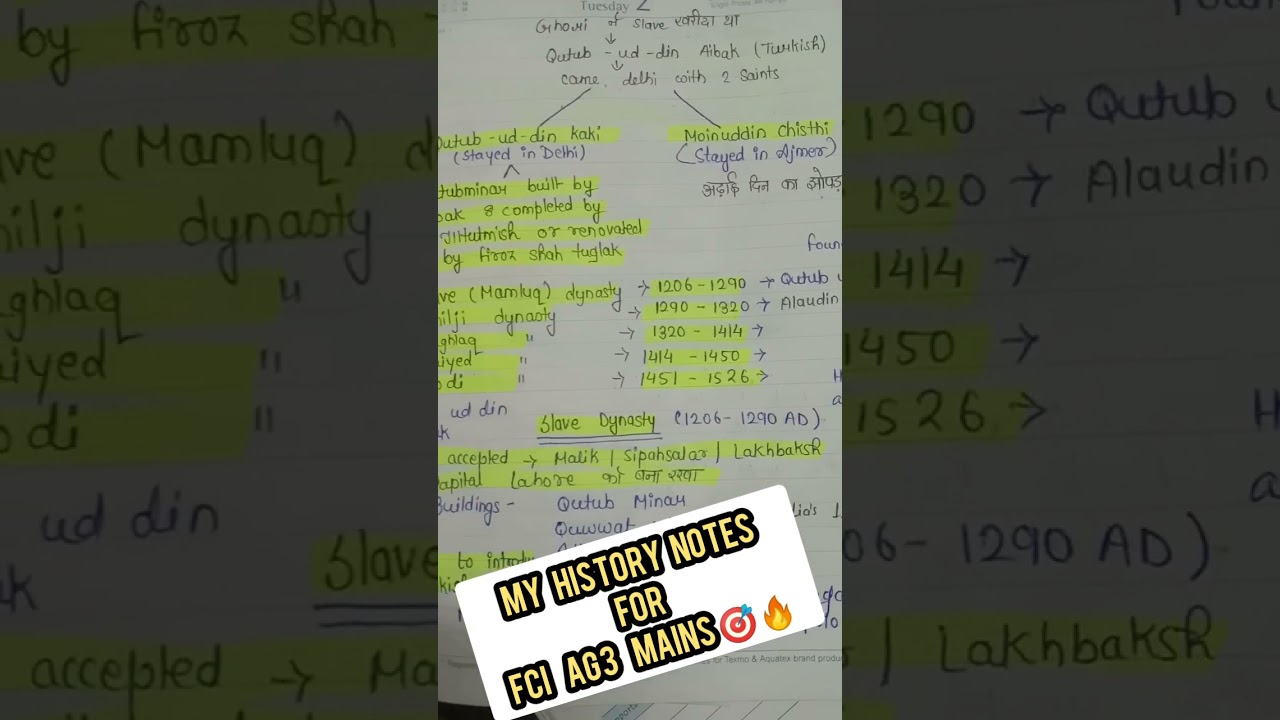 Tuesday 2
Ghori ने slave खरीदा था
Qutub-ud-din Aibak (Turkish)
came delhi with 2 Saints
utub-ud-din kaki
(stayed in Delhi)
Moinuddin chisthi
(Stayed in Ajmer)
tubminar built by
bak & completed by
by firoz shah tuglak
or renovated
अढ़ाई दिन का झोपड़
foun
ve (Mamluq) dynasty → 1206-1290 → Qutub u
ilji dynasty → 1290-1320 → Alaudin
ghlaq " → 1320 - 1414 →
iyed " → 1414 - 1450 →
di " → 1451-1526 →
ud din
Slave Dynasty (1206-1290 AD)
accepted → Malik / Sipahsalar / Lakhbaksh
apital Lahore को बना रखा
Buildings - Qutub Minar
Quwwat
to introdu
MY HISTORY NOTES
FOR
FCI AG3 MAINS🎯🔥
for Texmo & Aquatex brand produ